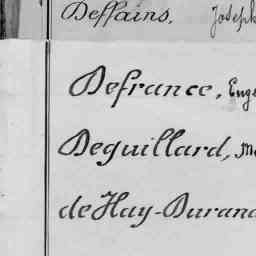 Deffains, Joseph
Defrance, Eug
Deguillard, M
de Hay-Durand